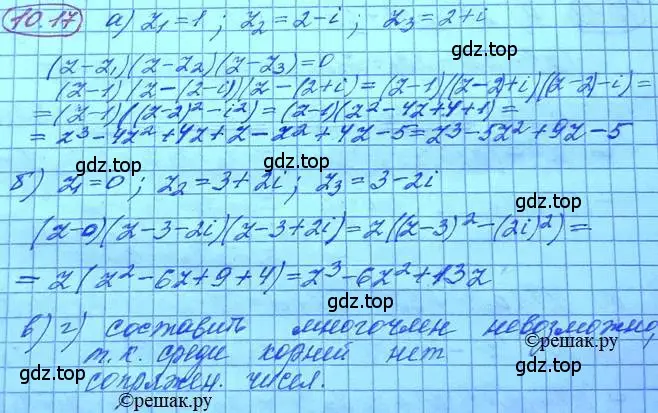 10.17 а) z₁=1; z₂=2-i; z₃=2+i
(z-z₁)(z-z₂)(z-z₃)=0
(z-1)(z-(2-i))(z-(2+i)=(z-1)(z-2)+i)(z-2)-i)=
=(z-1)((z-2)²-i²)=(z-1)(z²-4z+4+1)=
=z³-4z²+4z+z-z²+4z-5=z³-5z²+9z-5
gdz.top gdz.top
б) z₁=0; z₂=3+2i; z₃=3-2i
gdz.top
(z-0)(z-3-2i)(z-3+2i)=z((z-3)²-(2i)²)=
=z(z²-6z+9+4)=z³-6z²+13z
gdz.top
в) г) составить многочлен невозможно,
©решак.ру
т.к. среди корней нет
gdz.top gdz.top
сопряжен. чисел.
©решак.ру